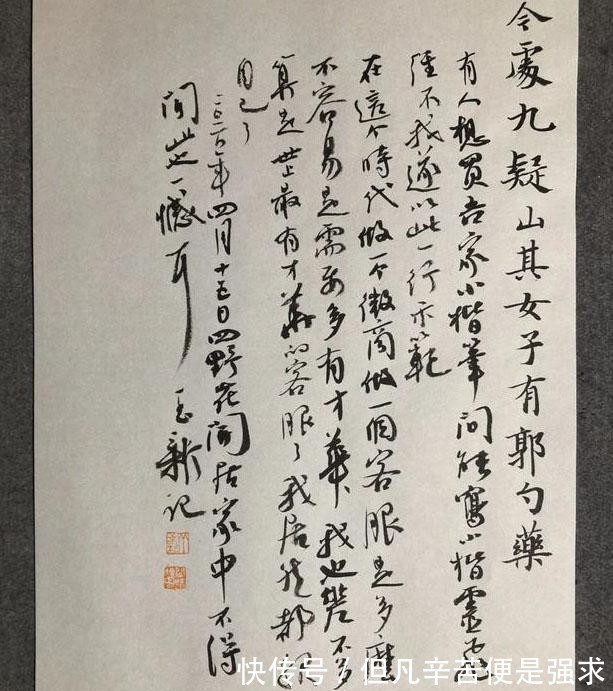 令處九疑山其女子有郭勺藥
有人想買吾家小楷筆問能寫小楷靈飛
經不我遂以此一行示範
在這个時代做一个微商做一個客服是多麼
不容易是需要多有才華我也差不多
算是世上最有才華的客服了我居然都
自己了
二〇二〇年四月十五日四野花開居家中不得
此一憾耳 玉新記
快传号/但凡辛苦便是强求